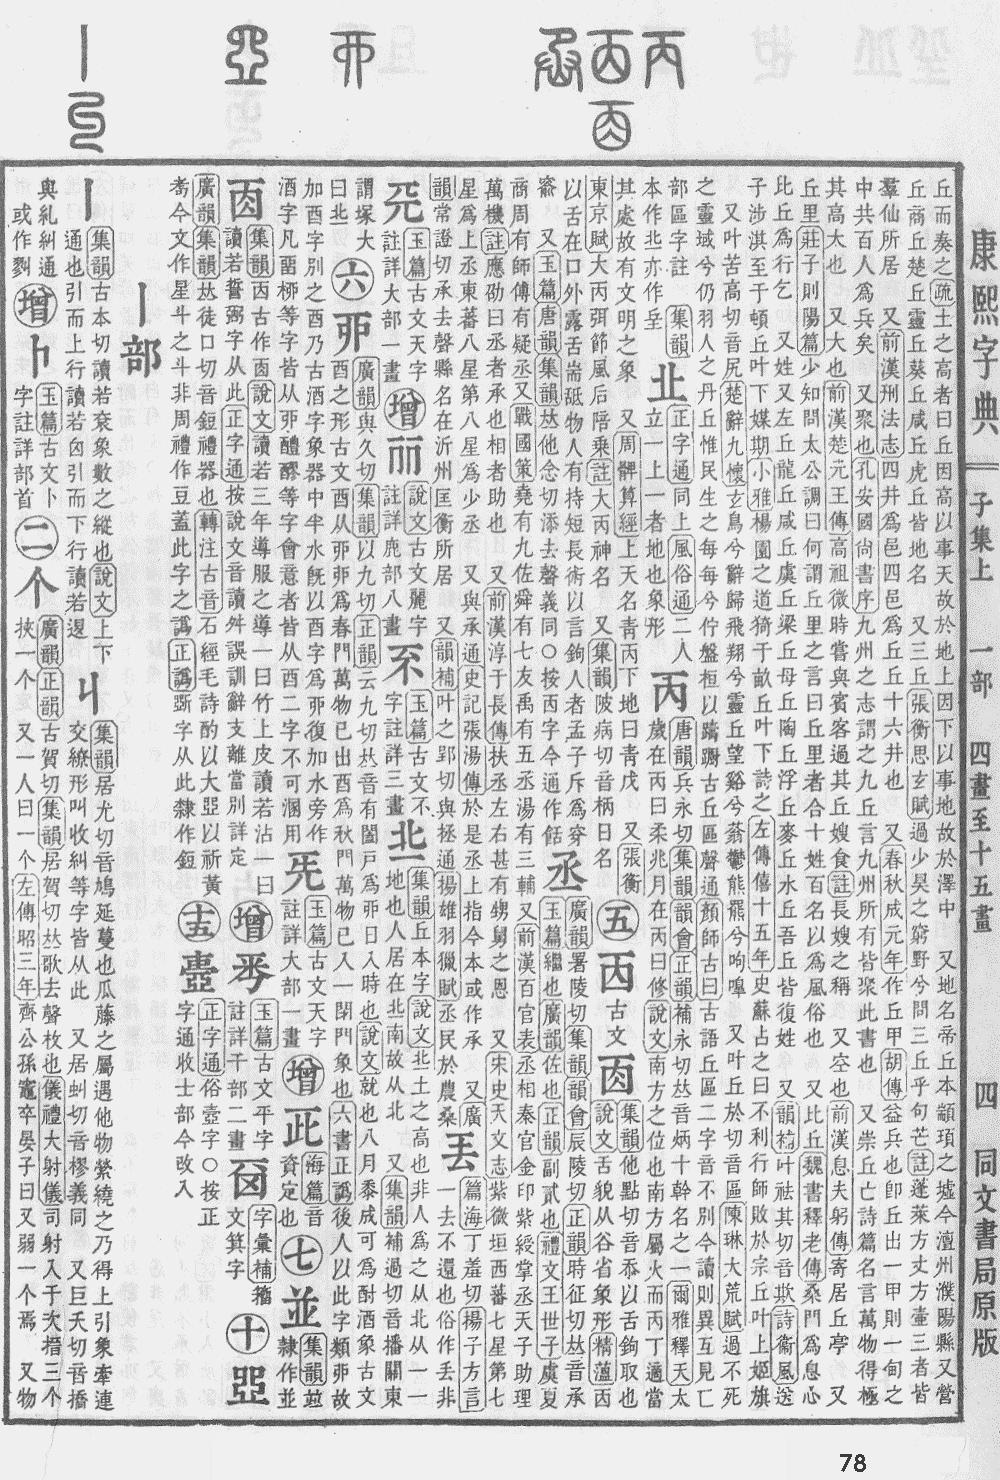 康熙字典 子集上 一部 四畫至十五畫 四 同文書局原版
丘而奏之疏土之高者曰丘因高以事天故於地上因下以事地故於澤中 又地名帝丘本顓頊之墟今澶州濮陽縣又營
丘商丘楚丘靈丘葵丘咸丘虎丘皆地名 又三丘張衡思玄賦過少昊之窮野兮問三丘乎句芒註蓬萊方丈方壷三者皆
羣仙所居 又前漢刑法志四井爲邑四邑爲丘丘十六井也 又春秋成元年作丘甲胡傳益兵也卽丘出一甲則一甸之
中共百人爲兵矣 又聚也孔安國尙書序九州之志謂之九丘言九州所有皆聚此書也 又崇丘亡詩篇名言萬物得極
其高大也 又大也前漢楚元王傳高祖微時嘗與賓客過其丘嫂食註長嫂之稱 又空也前漢息夫躬傳寄居丘亭 又
丘里莊子則陽篇少知問太公調曰何謂丘里之言曰丘里者合十姓百名以爲風俗也 又比丘魏書釋老傳桑門爲息心
比丘爲行乞 又姓又左丘龍丘咸丘虞丘梁丘母丘陶丘浮丘麥丘水丘吾丘皆復姓 又韻補叶祛其切音欺詩衞風送
子涉淇至于頓丘叶下媒期小雅楊園之道猗于畝丘叶下詩之左傳僖十五年史蘇占之曰不利行師敗於宗丘叶上姬旗
又叶苦高切音尻楚辭九懷玄鳥兮辭歸飛翔兮靈丘望谿兮蓊鬱熊羆兮呴嘷 又叶丘於切音區陳琳大荒賦過不死
之靈域兮仍羽人之丹丘惟民生之每每兮佇盤桓以躊躇古丘區聲通顏師古曰古語丘區二字音不別今讀則異互見匸
部區字註 集韻
本作北亦作坣
正字通同上風俗通二人
立一上一者地也象形
丙
唐韻兵永切集韻韻會正韻補永切𠀤音炳十幹名之一爾雅釋天太
歲在丙曰柔兆月在丙曰修說文南方之位也南方屬火而丙丁適當
其處故有文明之象 又周髀算經上天名靑丙下地曰靑戊 又張衡
東京賦大丙弭節風后陪乗註大丙神名 又集韻陂病切音柄日名
五
丙
古文
㐁
集韻他點切音忝以舌鉤取也
說文舌貌从谷省象形精薀㐁
以舌在口外露舌耑䑛物人有持短長術以言鉤人者孟子斥爲穿
窬 又玉篇唐韻集韻𠀤他念切添去聲義同○按㐁字今通作餂
丞
廣韻署陵切集韻韻會辰陵切正韻時征切𠀤音承
玉篇繼也廣韻佐也正韻副貳也禮文王世子虞夏
商周有師傅有疑丞又戰國策堯有九佐舜有七友禹有五丞湯有三輔又前漢百官表丞相秦官金印紫綬掌丞天子助理
萬機註應劭曰丞者承也相者助也 又前漢淳于長傳扶丞左右甚有甥舅之恩 又宋史天文志紫微垣西蕃七星第七
星爲上丞東蕃八星第八星爲少丞 又與承通史記張湯傳於是丞上指今本或作承 又廣韻常證切揚子方言
韻常證切承去聲縣名在沂州匡衡所居 又韻補叶之郢切與拯通揚雄羽獵賦丞民於農桑
丟
篇海丁羞切
一去不還也俗作丢非
兂
玉篇古文天字
註詳大部一畫
增
丽
說文古文麗字
註詳鹿部八畫
𠀚
玉篇古文不
字註詳三畫
北
集韻丘本字說文土之高也非人爲之从北从一一
地也人居在北南故从北 又集韻補過切音播關東
謂塚大
曰北
六
丣
廣韻與久切集韻以九切正韻云九切𠀤音有闔戶爲丣日入時也說文就也八月黍成可爲酎酒象古文
酉之形古文酉从丣丣爲春門萬物已出酉爲秋門萬物已入一閉門象也六書正譌後人以此字類丣故
加酉字別之酉乃古酒字象器中半水旣以酉字爲丣復加水旁作
酒字凡畱桺等字皆从丣醴醪等字會意者皆从酉二字不可溷用
兂
玉篇古文天字
註詳大部一畫
增
㱔
海篇音
資定也
七
並
集韻竝
隸作並
㐁
集韻㐁古作㐁說文讀若三年導服之導一曰竹上皮讀若沾一曰
讀若誓弼字从此正字通按說文音讀舛誤訓辭支離當別詳定
增
𠀘
玉篇古文平字
註詳干部二畫
字彙補籀
文箕字
十
㗊
廣韻集韻𠀤徒口切音鋀禮器也轉注古音石經毛詩酌以大㗊以祈黃
耇今文作星斗之斗非周禮作豆蓋此字之譌正譌斲字从此隸作鋀
𡔷
正字通俗壼字○按正
字通收士部今改入
丨部
丨
集韻古本切讀若衮象數之縱也說文上下
通也引而上行讀若囟引而下行讀若𨓤
丩
集韻居尤切音鳩延蔓也瓜藤之屬遇他物縈繞之乃得上引象牽連
交繚形叫收糾等字皆从此 又居虯切音樛義同 又巨夭切音撟
與糺糾通
或作㔃
增
卜
玉篇古文卜
字註詳部首
二
个
廣韻正韻古賀切集韻居賀切𠀤歌去聲枚也儀禮大射儀司射入于次搢三个
挾一个 又一人曰一个左傳昭三年齊公孫竈卒晏子曰又弱一个焉 又物
78